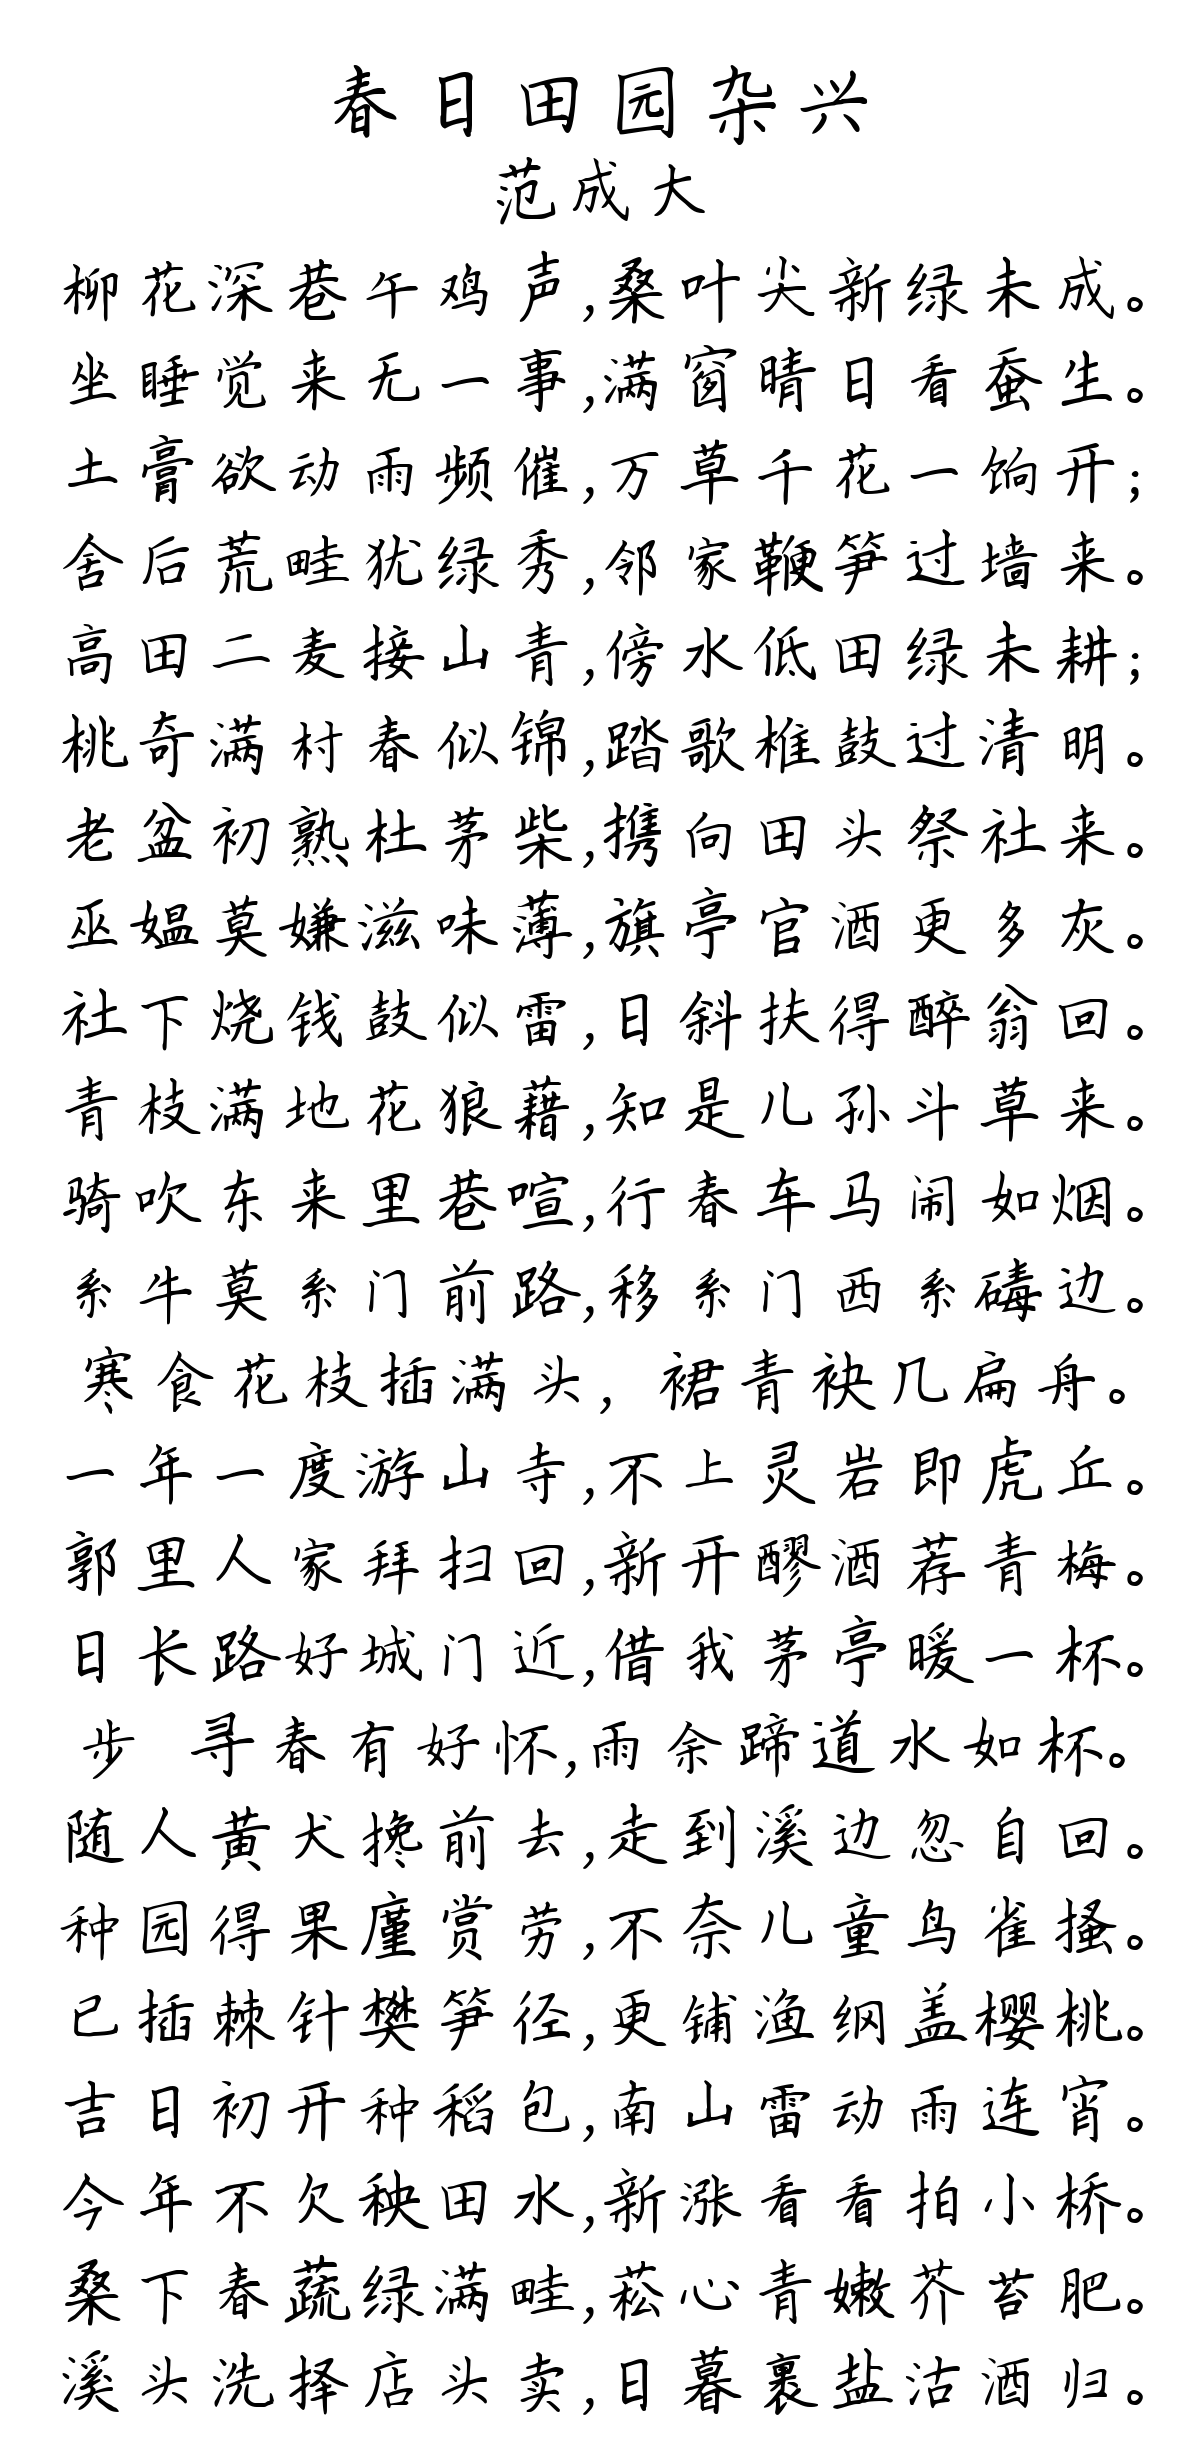 春日田园杂兴
范成大
柳花深巷午鸡声,桑叶尖新绿未成。
坐睡觉来无一事,满窗晴日看蚕生。
土膏欲动雨频催,万草千花一饷开;
舍后荒畦犹绿秀,邻家鞭笋过墙来。
高田二麦接山青,傍水低田绿未耕;
桃奇满村春似锦,踏歌椎鼓过清明。
老盆初熟杜茅柴,携向田头祭社来。
巫媪莫嫌滋味薄,旗亭官酒更多灰。
社下烧钱鼓似雷,日斜扶得醉翁回。
青枝满地花狼藉,知是儿孙斗草来。
骑吹东来里巷喧,行春车马闹如烟。
系牛莫系门前路,移系门西系碡边。
寒食花枝插满头，裙青袂几扁舟。
一年一度游山寺,不上灵岩即虎丘。
郭里人家拜扫回,新开醪酒荐青梅。
日长路好城门近,借我茅亭暖一杯。
步 寻春有好怀,雨余蹄道水如杯。
随人黄犬搀前去,走到溪边忽自回。
种园得果廑赏劳,不奈儿童鸟雀搔。
已插棘针樊笋径,更铺渔纲盖樱桃。
吉日初开种稻包,南山雷动雨连宵。
今年不欠秧田水,新涨看看拍小桥。
桑下春蔬绿满畦,菘心青嫩芥苔肥。
溪头洗择店头卖,日暮裹盐沽酒归。